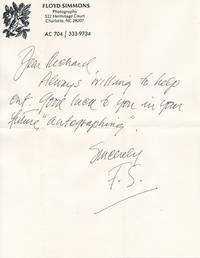 FLOYD SIMMONS
Photography
522 Hermitage Court
Charlotte, NC 28207
AC 704 / 333-9734
Dear Richard,
Always willing to help
out. Good luck to you in your
future, "autographing".
Sincerely
F. S.